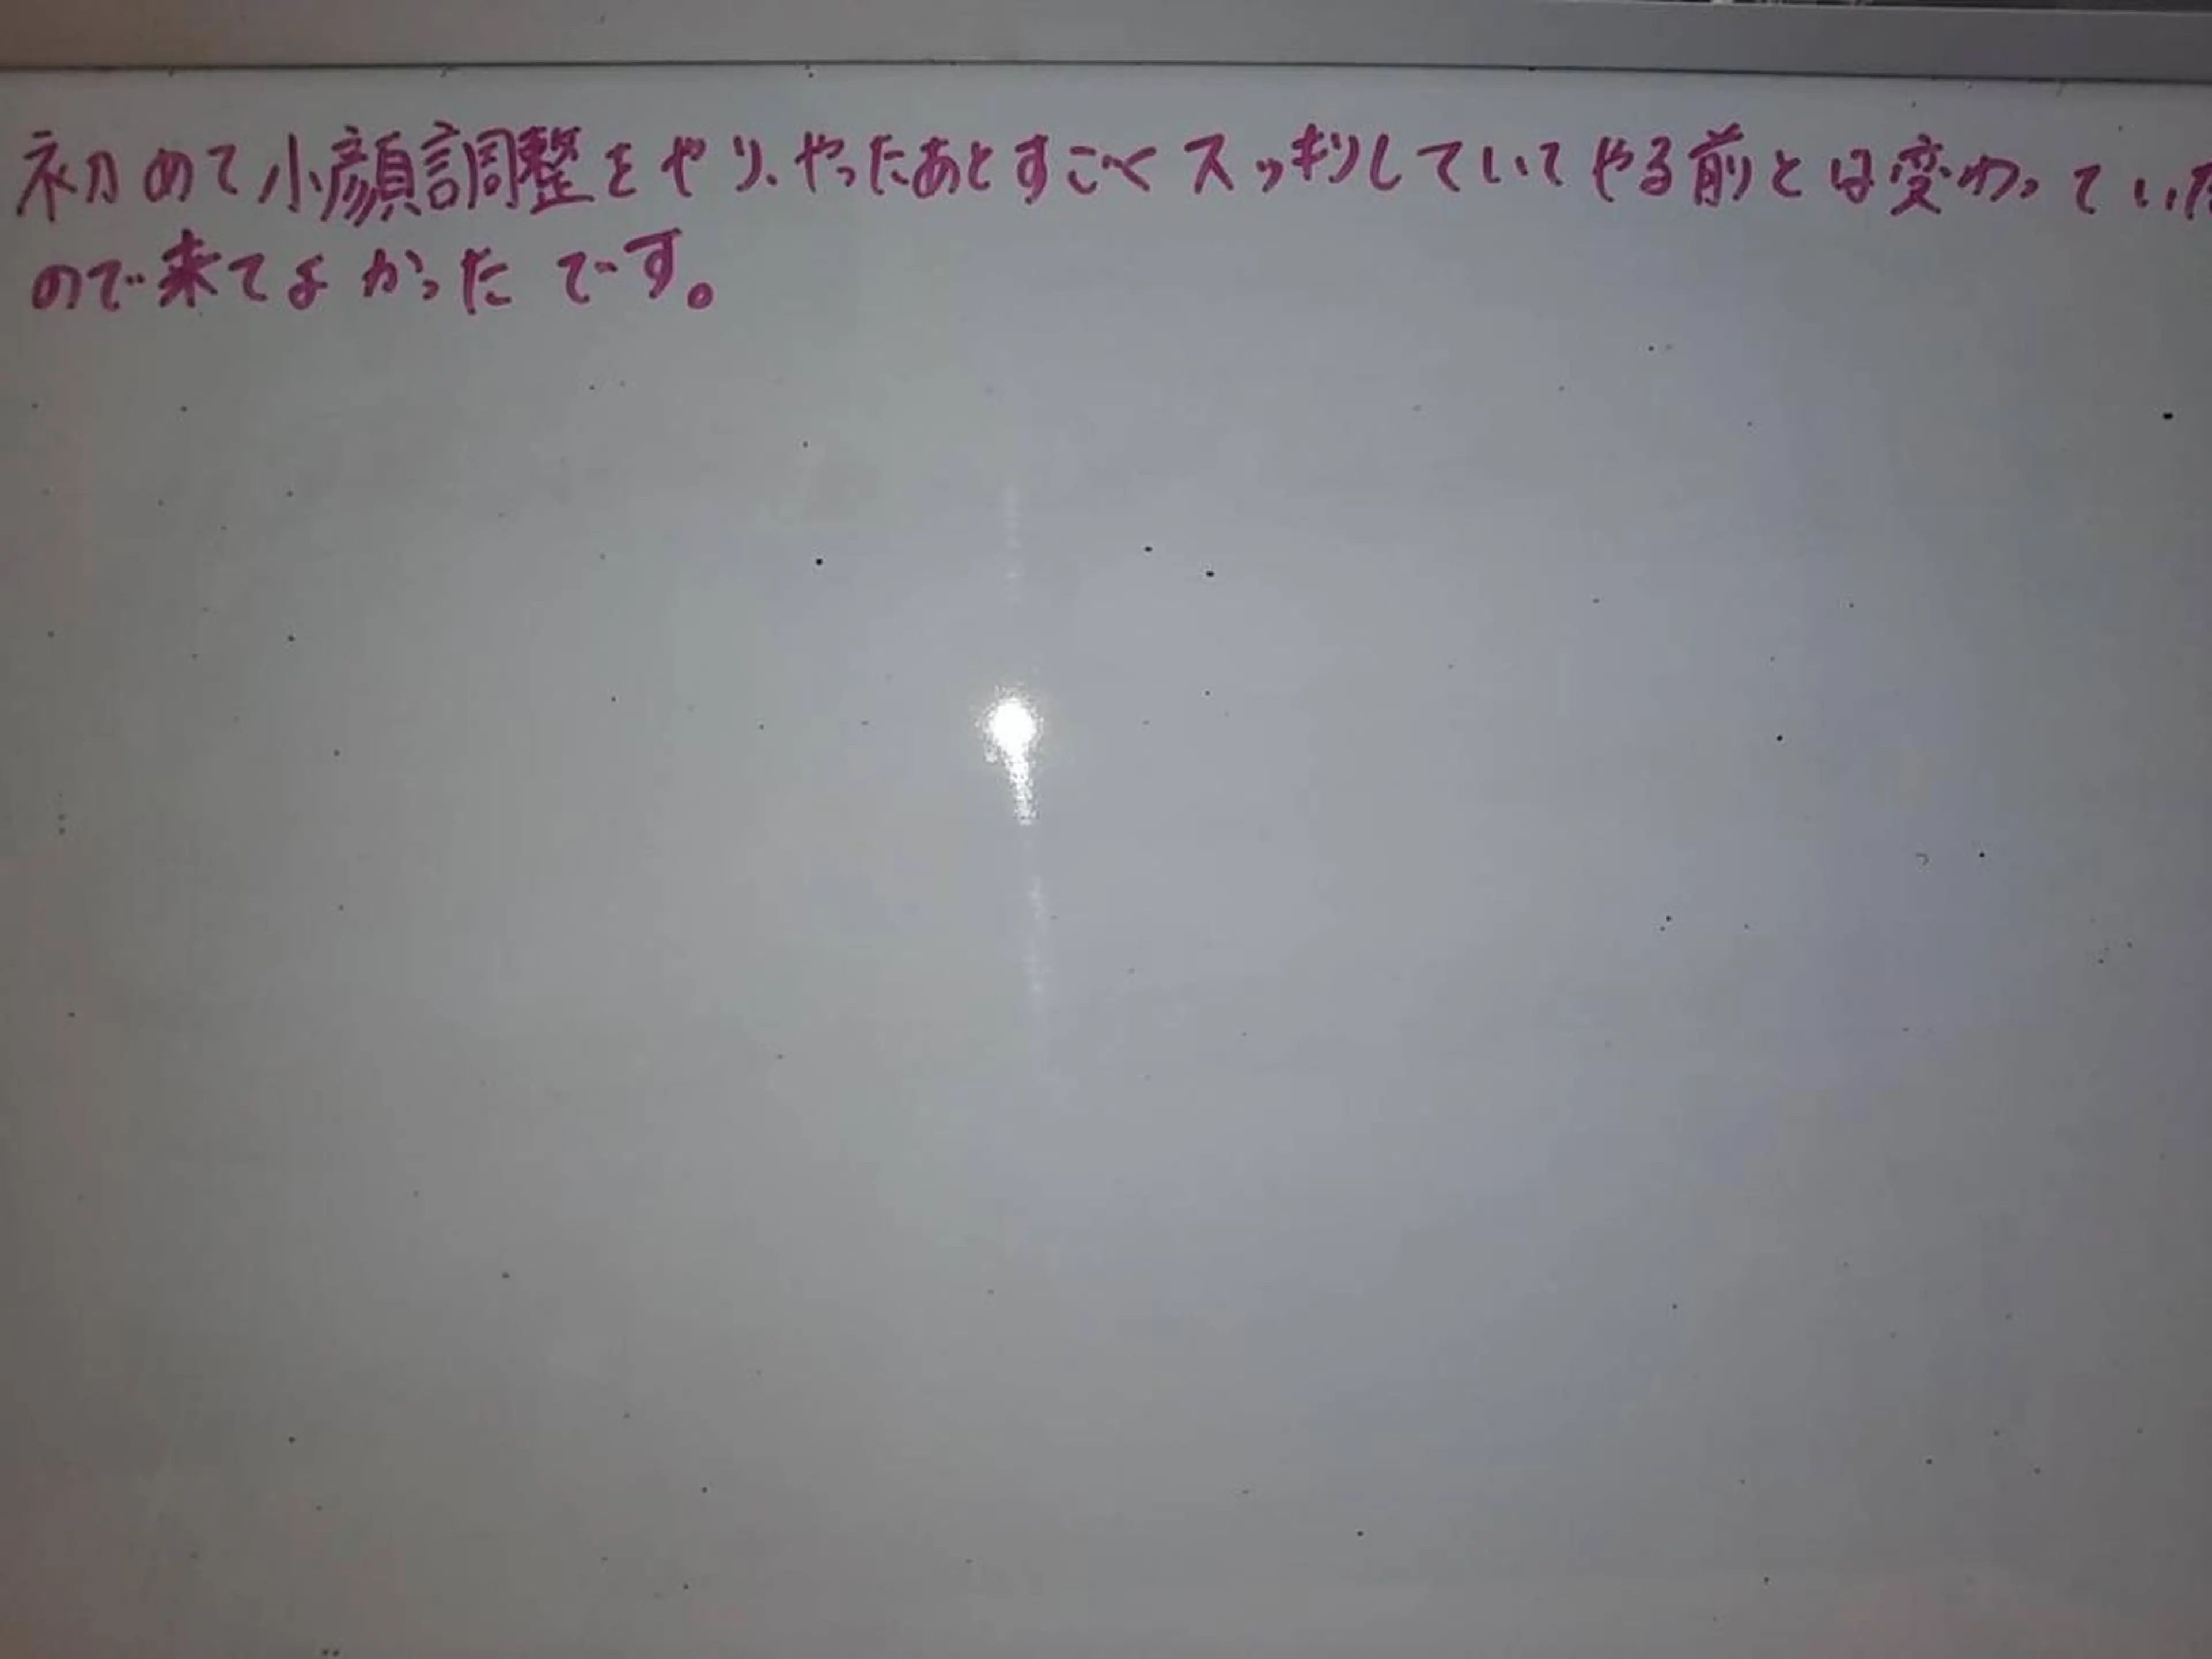 初めて小顔調整をやり、やったあとすごくスッキリしていてやる前とは変わっていた
ので来てよかったです。